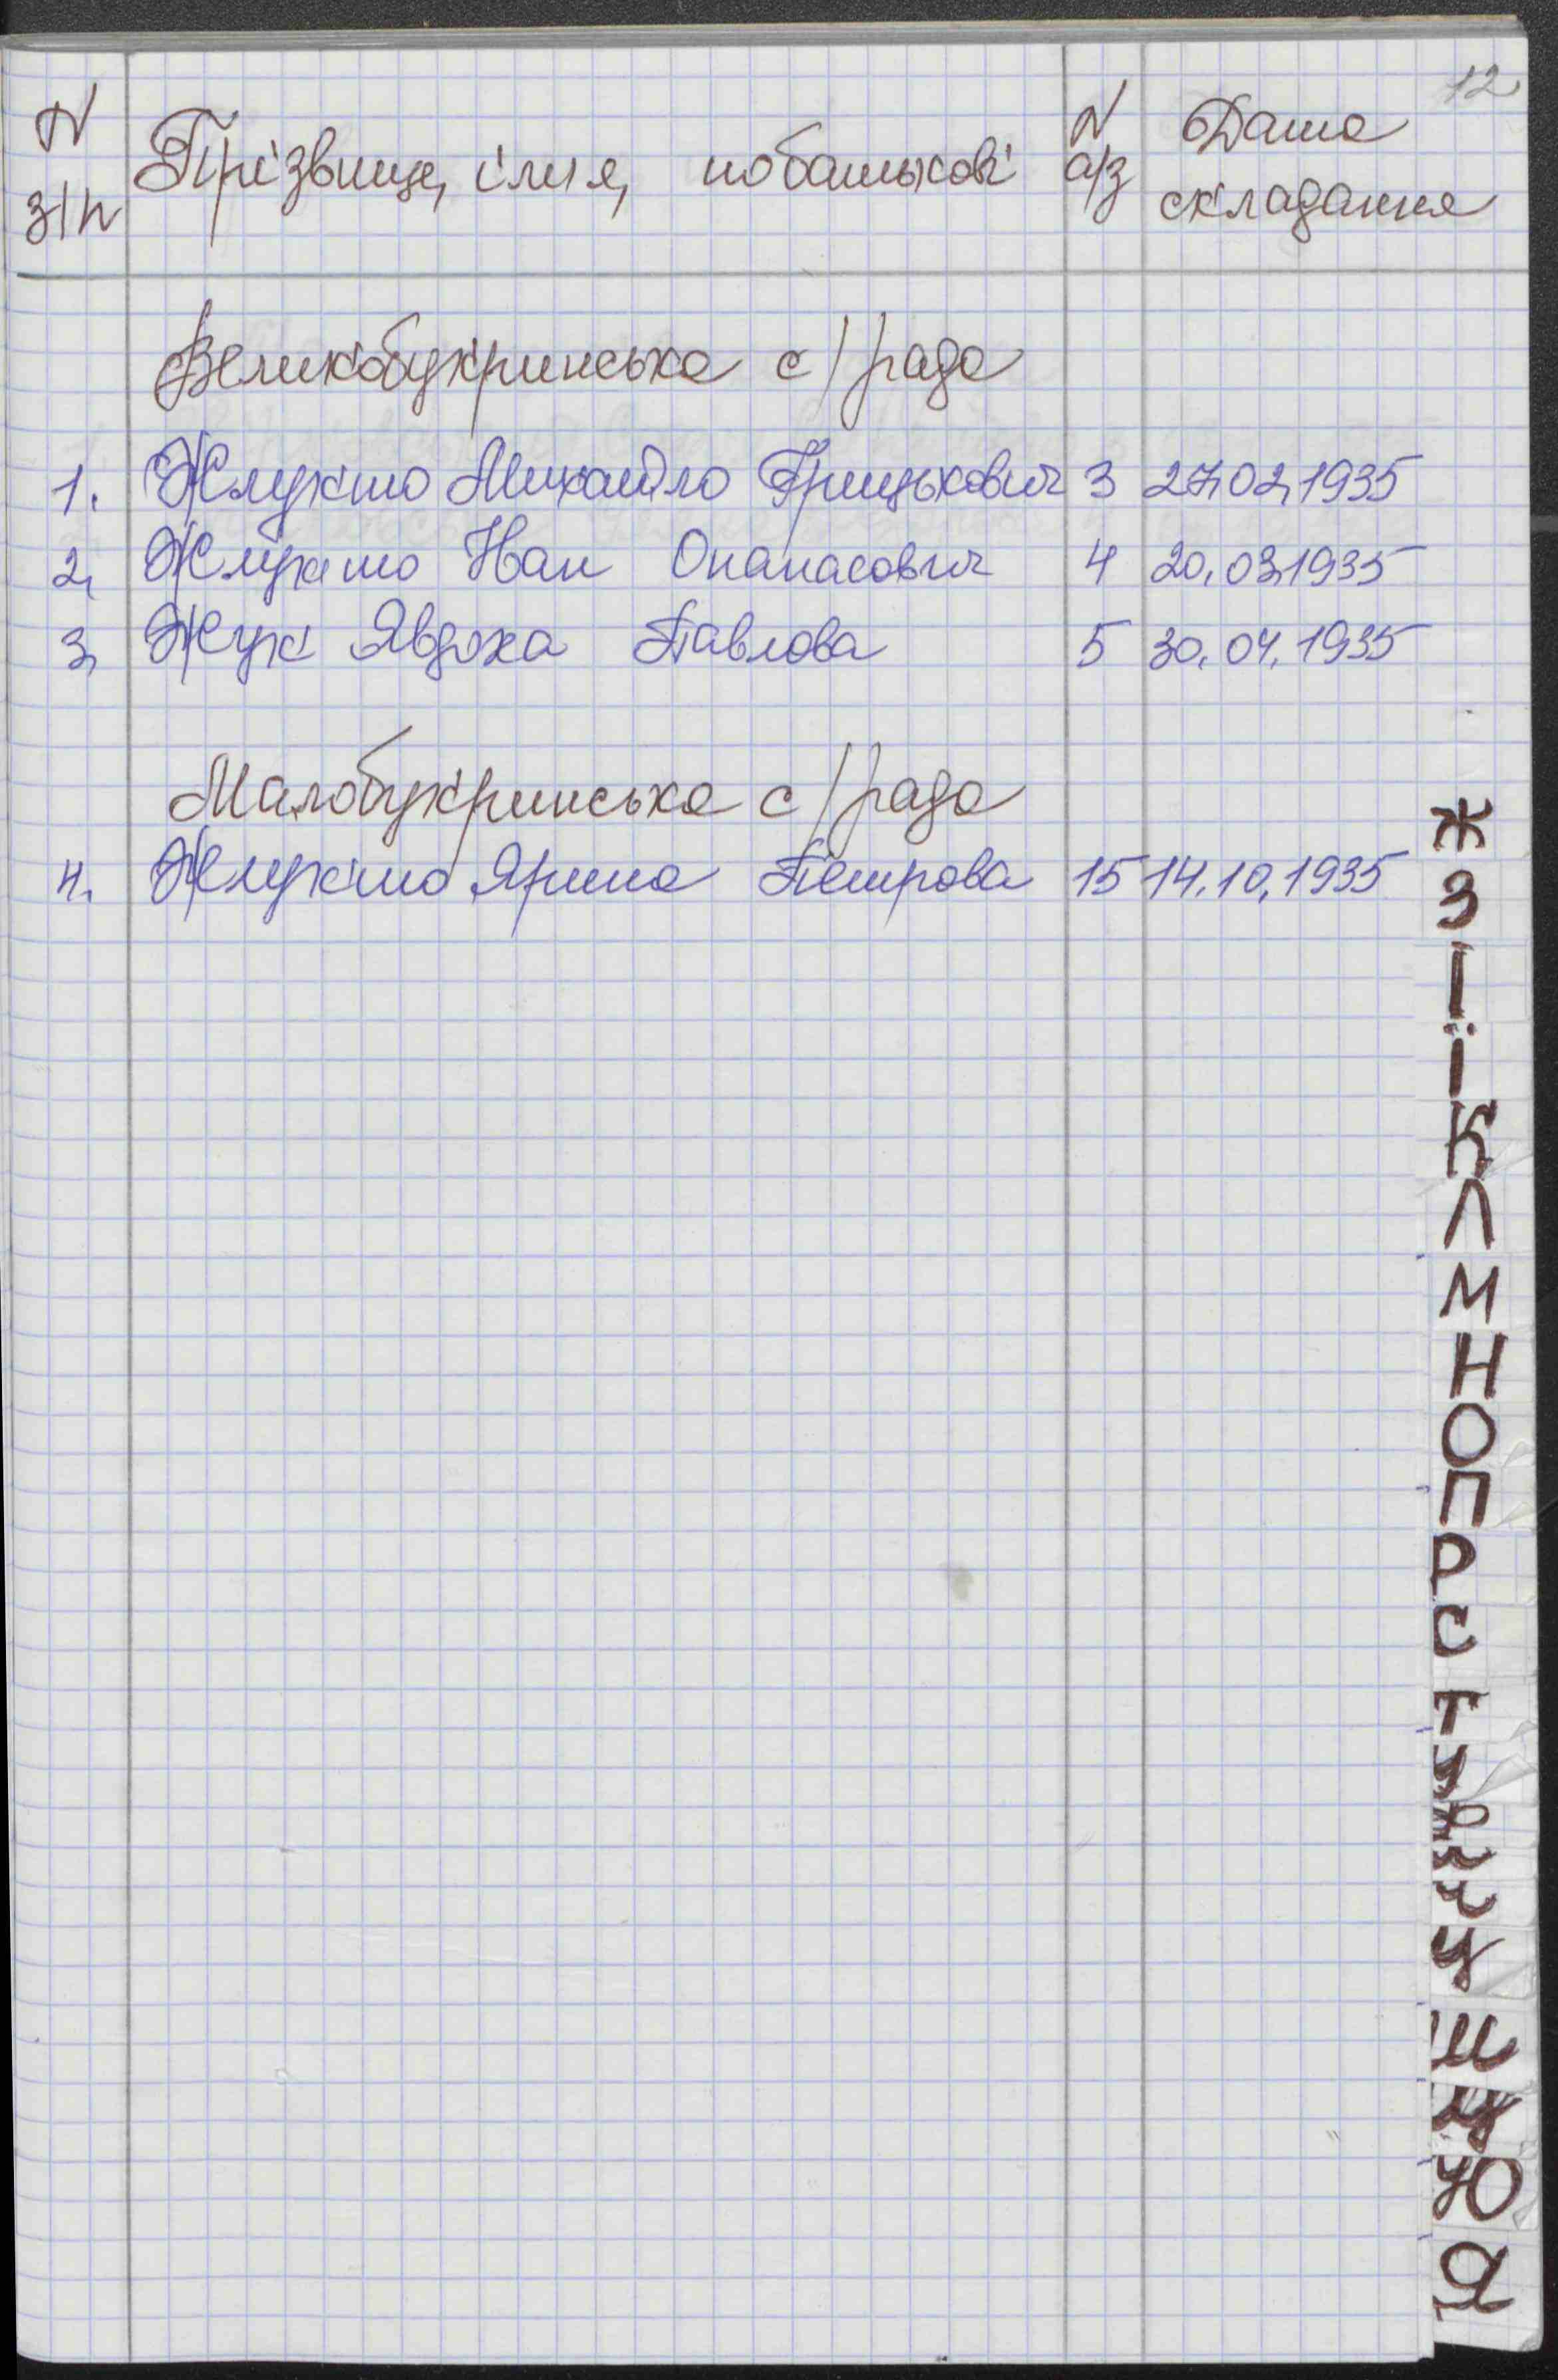 12
N з/п Прізвище, ім'я, по батькові N а/з Дата складання
Великобукринська с/рада
1. Жлукто Михайло Грицькович 3 27.02.1935
2. Жлукто Іван Опанасович 4 20.03.1935
3. Жук Явдоха Павлова 5 30.04.1935
Малобукринська с/рада
4. Жлукто Ярина Петрова 15 14.10.1935
Ж
З
І
Ї
К
Л
М
Н
О
П
Р
С
Т
У
Ф
Х
Ц
Ч
Ш
Щ
Ю
Я